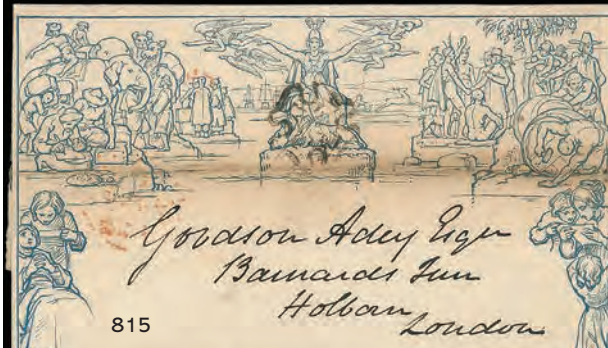 Goodson Adey Esqre
Barnards Inn
Holborn
London
815